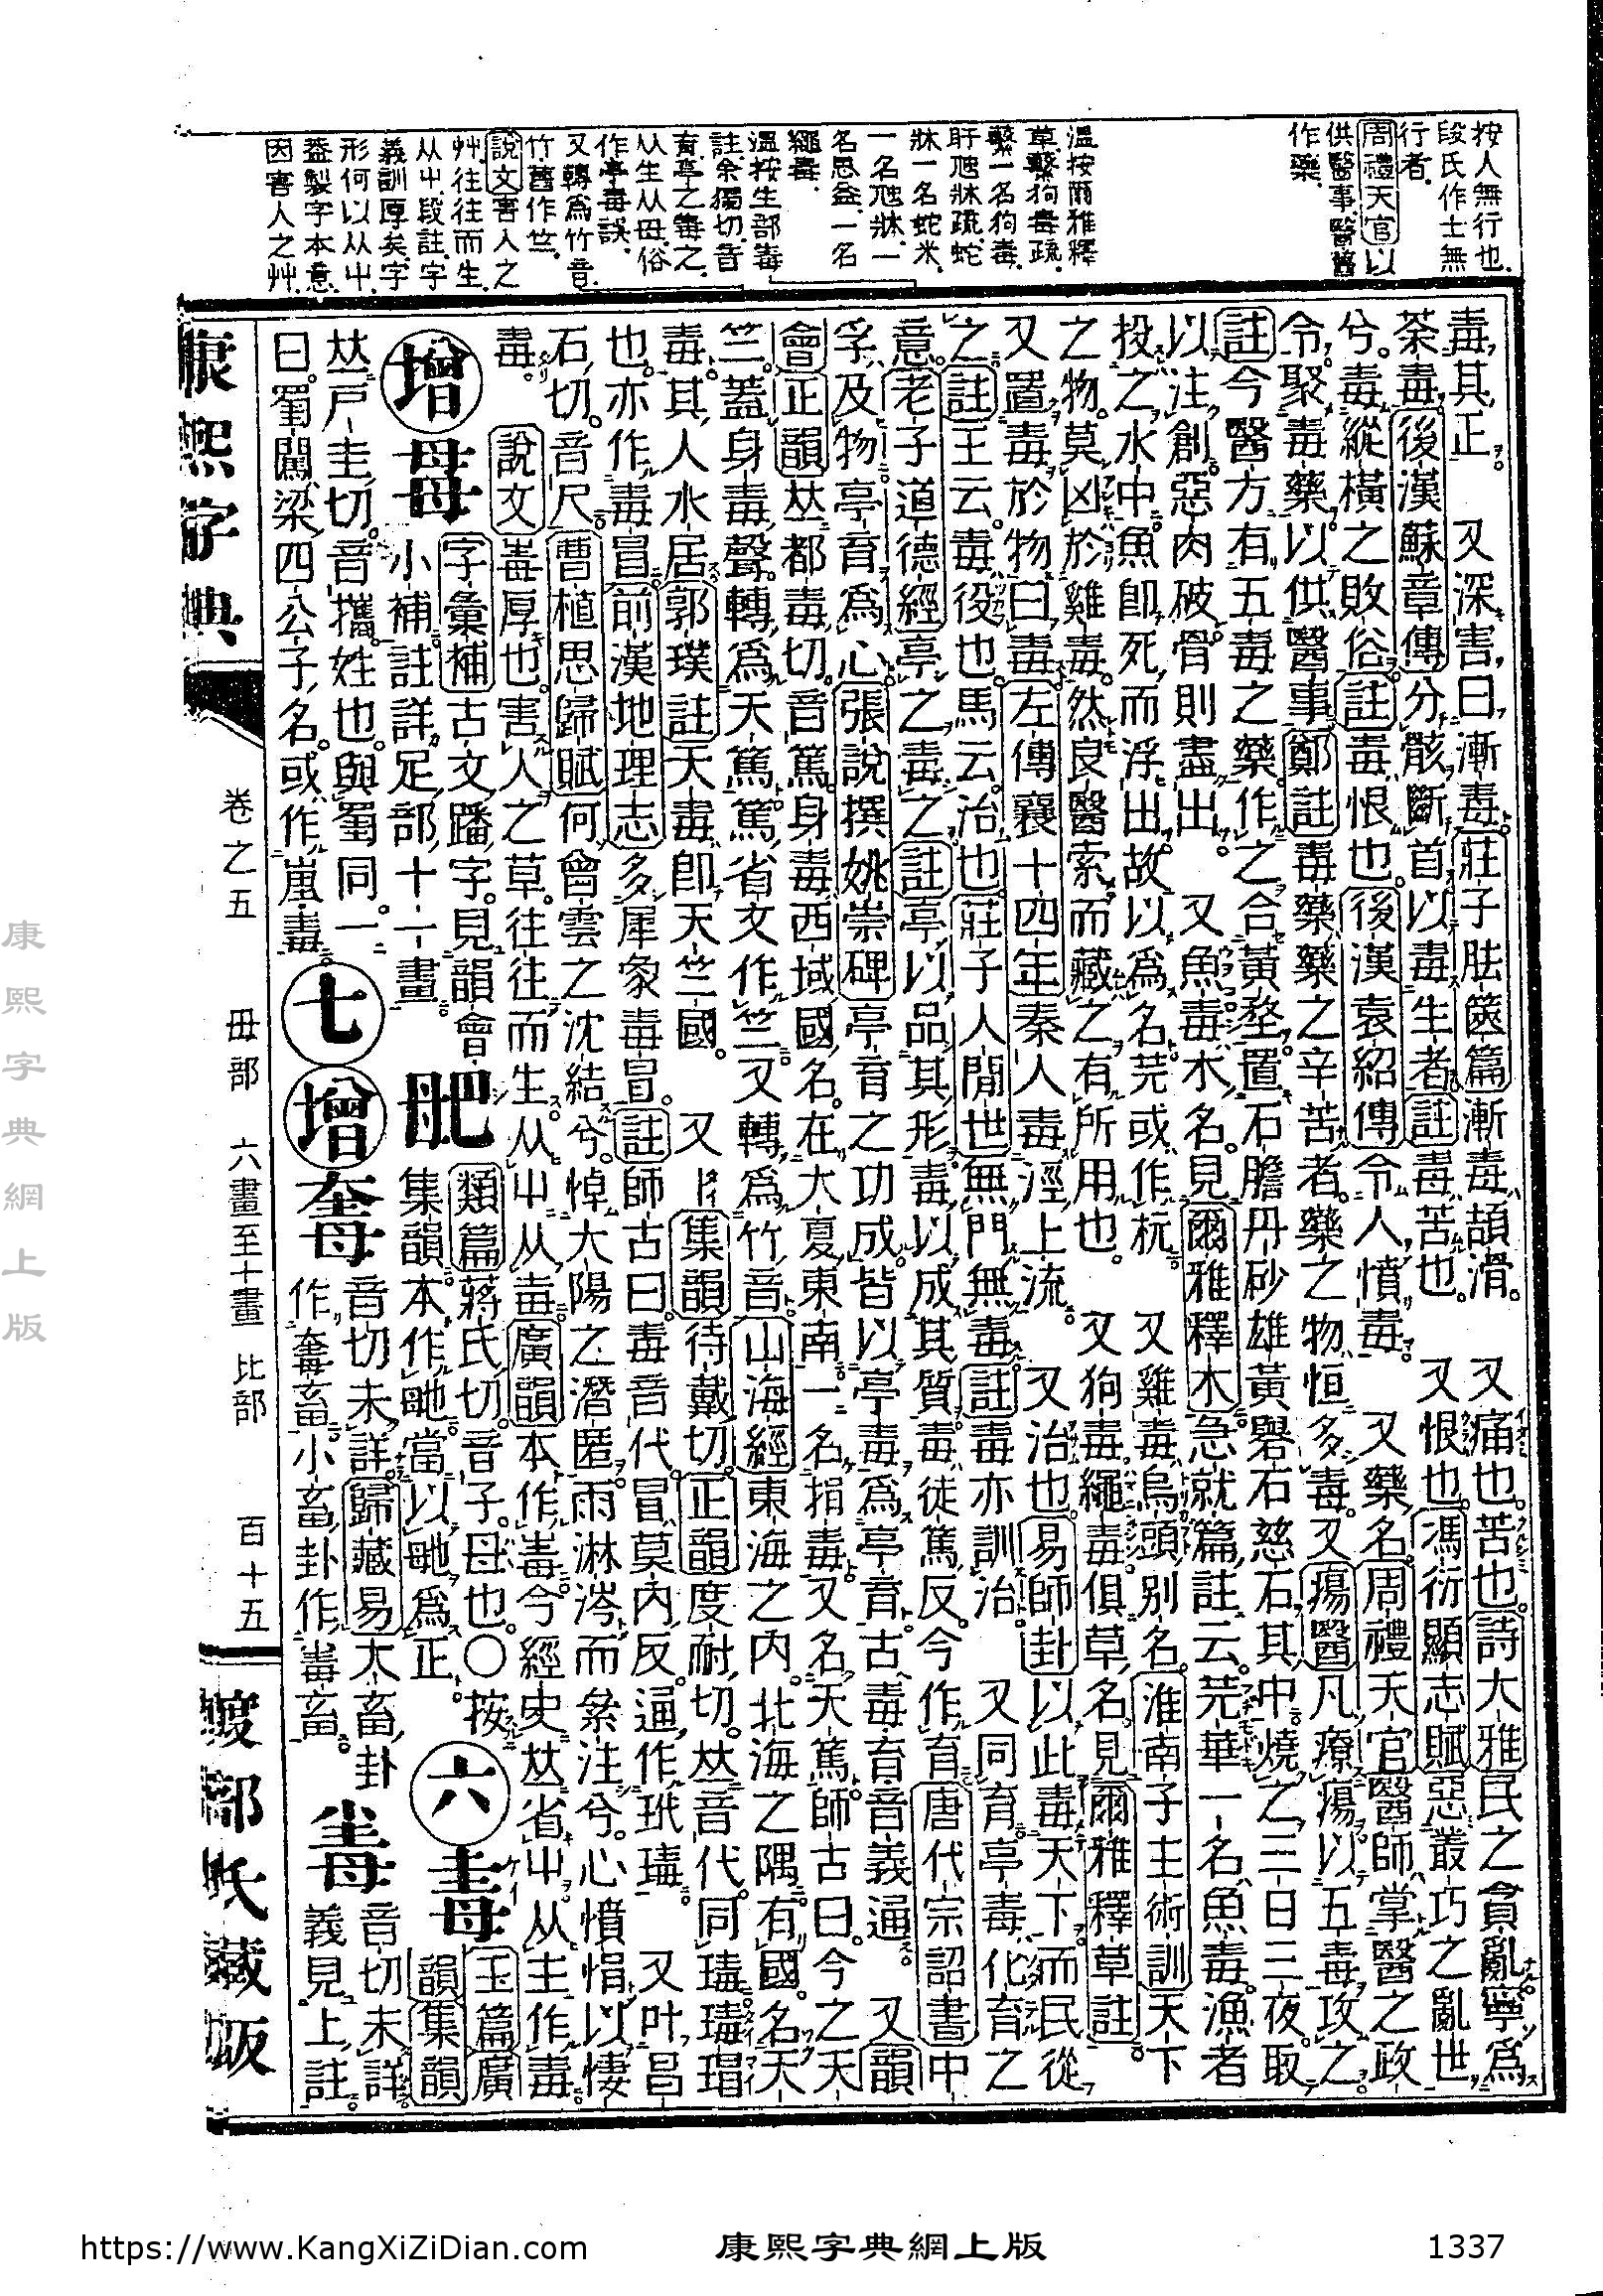 按人無行也
段氏作士無
行者
周禮天官以
供醫事醫醫
作藥
溫按爾雅釋
草蘩狗毒疏
蘩一名狗毒
盱虺牀疏蛇
牀一名蛇米
一名虺牀一
名思益一名
繩毒
溫按生部毒
註余獨切音
育亭之毒之
从生从毋俗
作亭毒誤
又轉爲竹音
竹舊作竺
說文害人之
艸往往而生
从屮段註字
義訓厚矣字
形何以从屮
葢製字本意
因害人之艸
毒其正。 又深害曰漸毒。莊子胠篋篇漸毒頡滑。 又痛也。苦也。詩大雅民之貪亂寧爲
荼毒。後漢蘇章傳分骸斷首以毒生者註毒苦也。 又恨也。馮衍顯志賦惡叢巧之亂世
兮。毒縱橫之敗俗。註毒恨也。後漢袁紹傳令人憤毒。 又藥名。周禮天官醫師掌醫之政
令。聚毒藥以供醫事鄭註毒藥藥之辛苦者。藥之物恒多毒。又瘍醫凡療瘍以五毒攻之。
註今醫方有五毒之藥。作之合黃堥置石膽丹砂雄黃礜石慈石其中。燒之三日三夜。取
以注創。惡肉破。骨則盡出。 又魚毒木名。見爾雅釋木急就篇註云。芫華一名魚毒。漁者
投之水中。魚卽死而浮出。故以爲名芫或作杬。 又雞毒烏頭別名。淮南子主術訓天下
之物。莫凶於雞毒。然良醫索而藏之有所用也。 又狗毒繩毒俱草名。見爾雅釋草註。
又置毒於物曰毒。左傳襄十四年秦人毒涇上流。 又治也。易師卦以此毒天下。而民從
之。註王云。毒役也。馬云。治也。莊子人閒世無門無毒。註毒亦訓治。 又同育。亭毒化育之
意。老子道德經亭之毒之註亭以品其形。毒以成其質。毒徒篤反。今作育唐代宗詔書中
孚及物亭育爲心。張說撰姚崇碑亭育之功成。皆以亭毒爲亭育。古毒育音義通。 又韻
會正韻𠀤都毒切。音篤。身毒西域國名。在大夏東南。一名捐毒。又名天篤。師古曰。今之天
竺。蓋身毒聲轉爲天篤。篤省文作竺。又轉爲竹音。山海經東海之內。北海之隅。有國名天
毒。其人水居郭璞註天毒卽天竺國。 又集韻待戴切。正韻度耐切。𠀤音代。同瑇。瑇瑁
也。亦作毒冒。前漢地理志多犀象毒冒。註師古曰。毒音代。冒莫內反。通作玳瑇。 又叶昌
石切。音尺。曹植思歸賦何曾雲之沈結兮。悼大陽之潛匿。雨淋涔而絫注兮。心憤悁以悽
毒。 說文毒厚也。害人之草。往往而生。从屮从毐。廣韻本作毒今經史𠀤省屮从主作毒。
增 𣫬 字彙補古文蹯字。見韻會小補註詳足部十一畫。
𣫭 類篇蔣氏切。音子。母也。〇按集韻本作毑當以毑爲正。
六 𣫮 玉篇廣韻集韻𠀤戸圭切。音攜。姓也。與蜀同。一曰。蜀闖梁四公子名。或作𡹎毒。
七 增 音切未詳。歸藏易大畜卦作奞畜小畜卦作毒畜。
音切未詳。義見上註。
康熙字典
卷之五
毋部 六畫至十畫 比部
百十五
渡部氏藏版
康熙字典網上版
https://www.KangXiZiDian.com
康熙字典網上版
1337